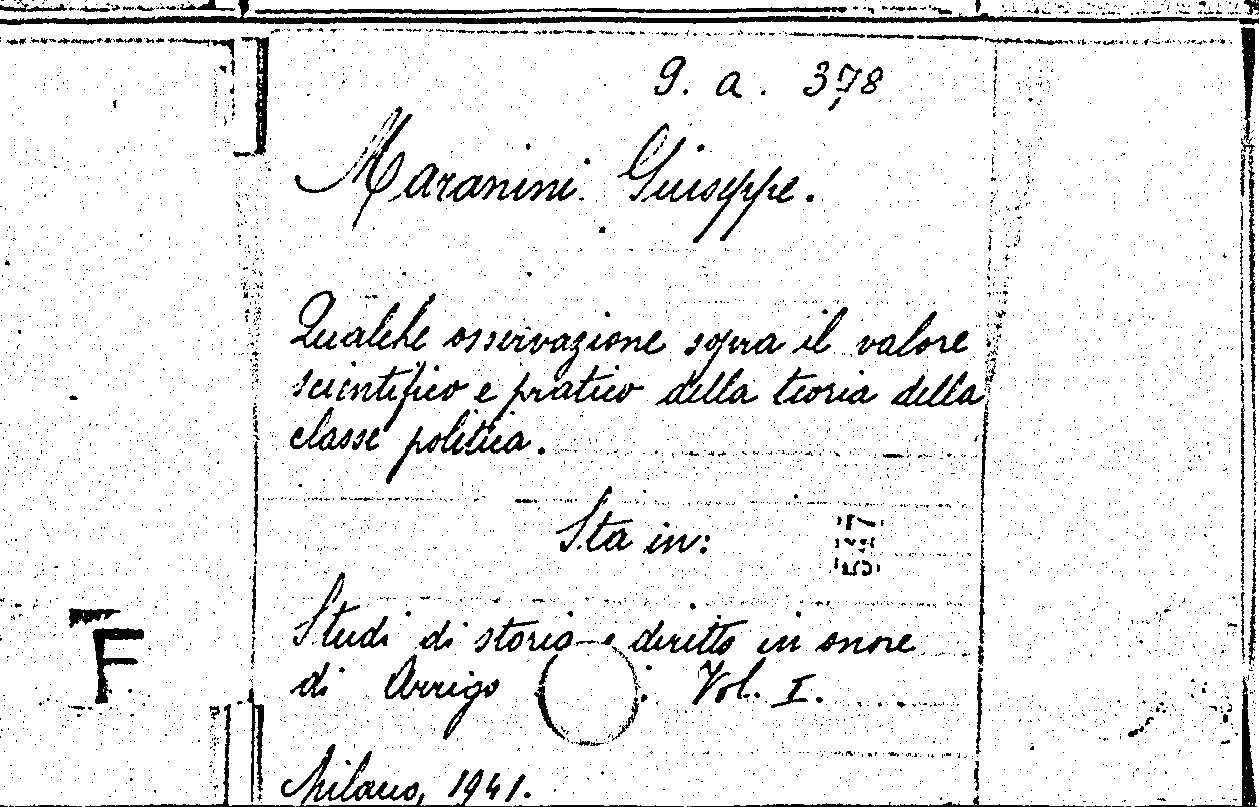 9. a. 378
Maranini Giuseppe.
Qualche osservazione sopra il valore
scientifico e pratico della teoria della
classe politica.
Sta in:
547
Studi di storia e diritto in onore
di Arrigo : Vol. I.
F
Milano, 1941.